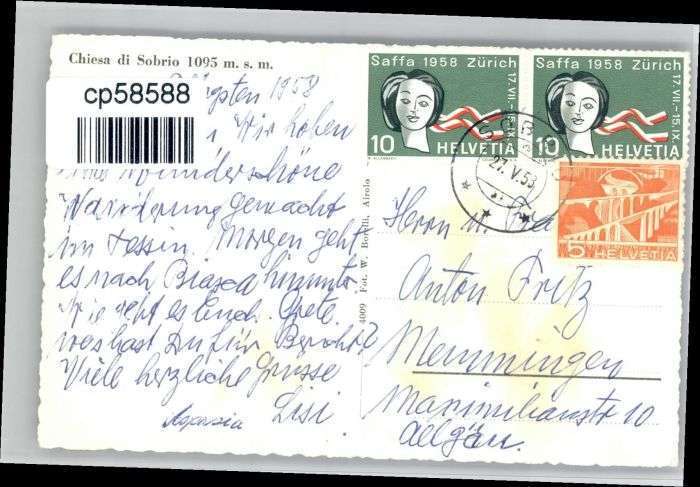 Chiesa di Sobrio 1095 m. s. m.
Pfingsten 1958
cp58588
Wir haben
eine wunderschöne
Wanderung gemacht
im Tessin. Morgen geht
es nach Biasca hinunter
Wie geht es Euch. Grete
was hast Du für Bericht?
Viele herzliche Grüsse
Lisi.
4009 Fot. W. Borelli, Airolo
Saffa 1958 Zürich
17.VII.-15.IX.
10 HELVETIA
Saffa 1958 Zürich
17.VII.-15.IX.
10 HELVETIA
5 HELVETIA
27.V.58
Herrn u.
Anton Fritz
Memmingen
Maximilianstr 10
Allgäu.